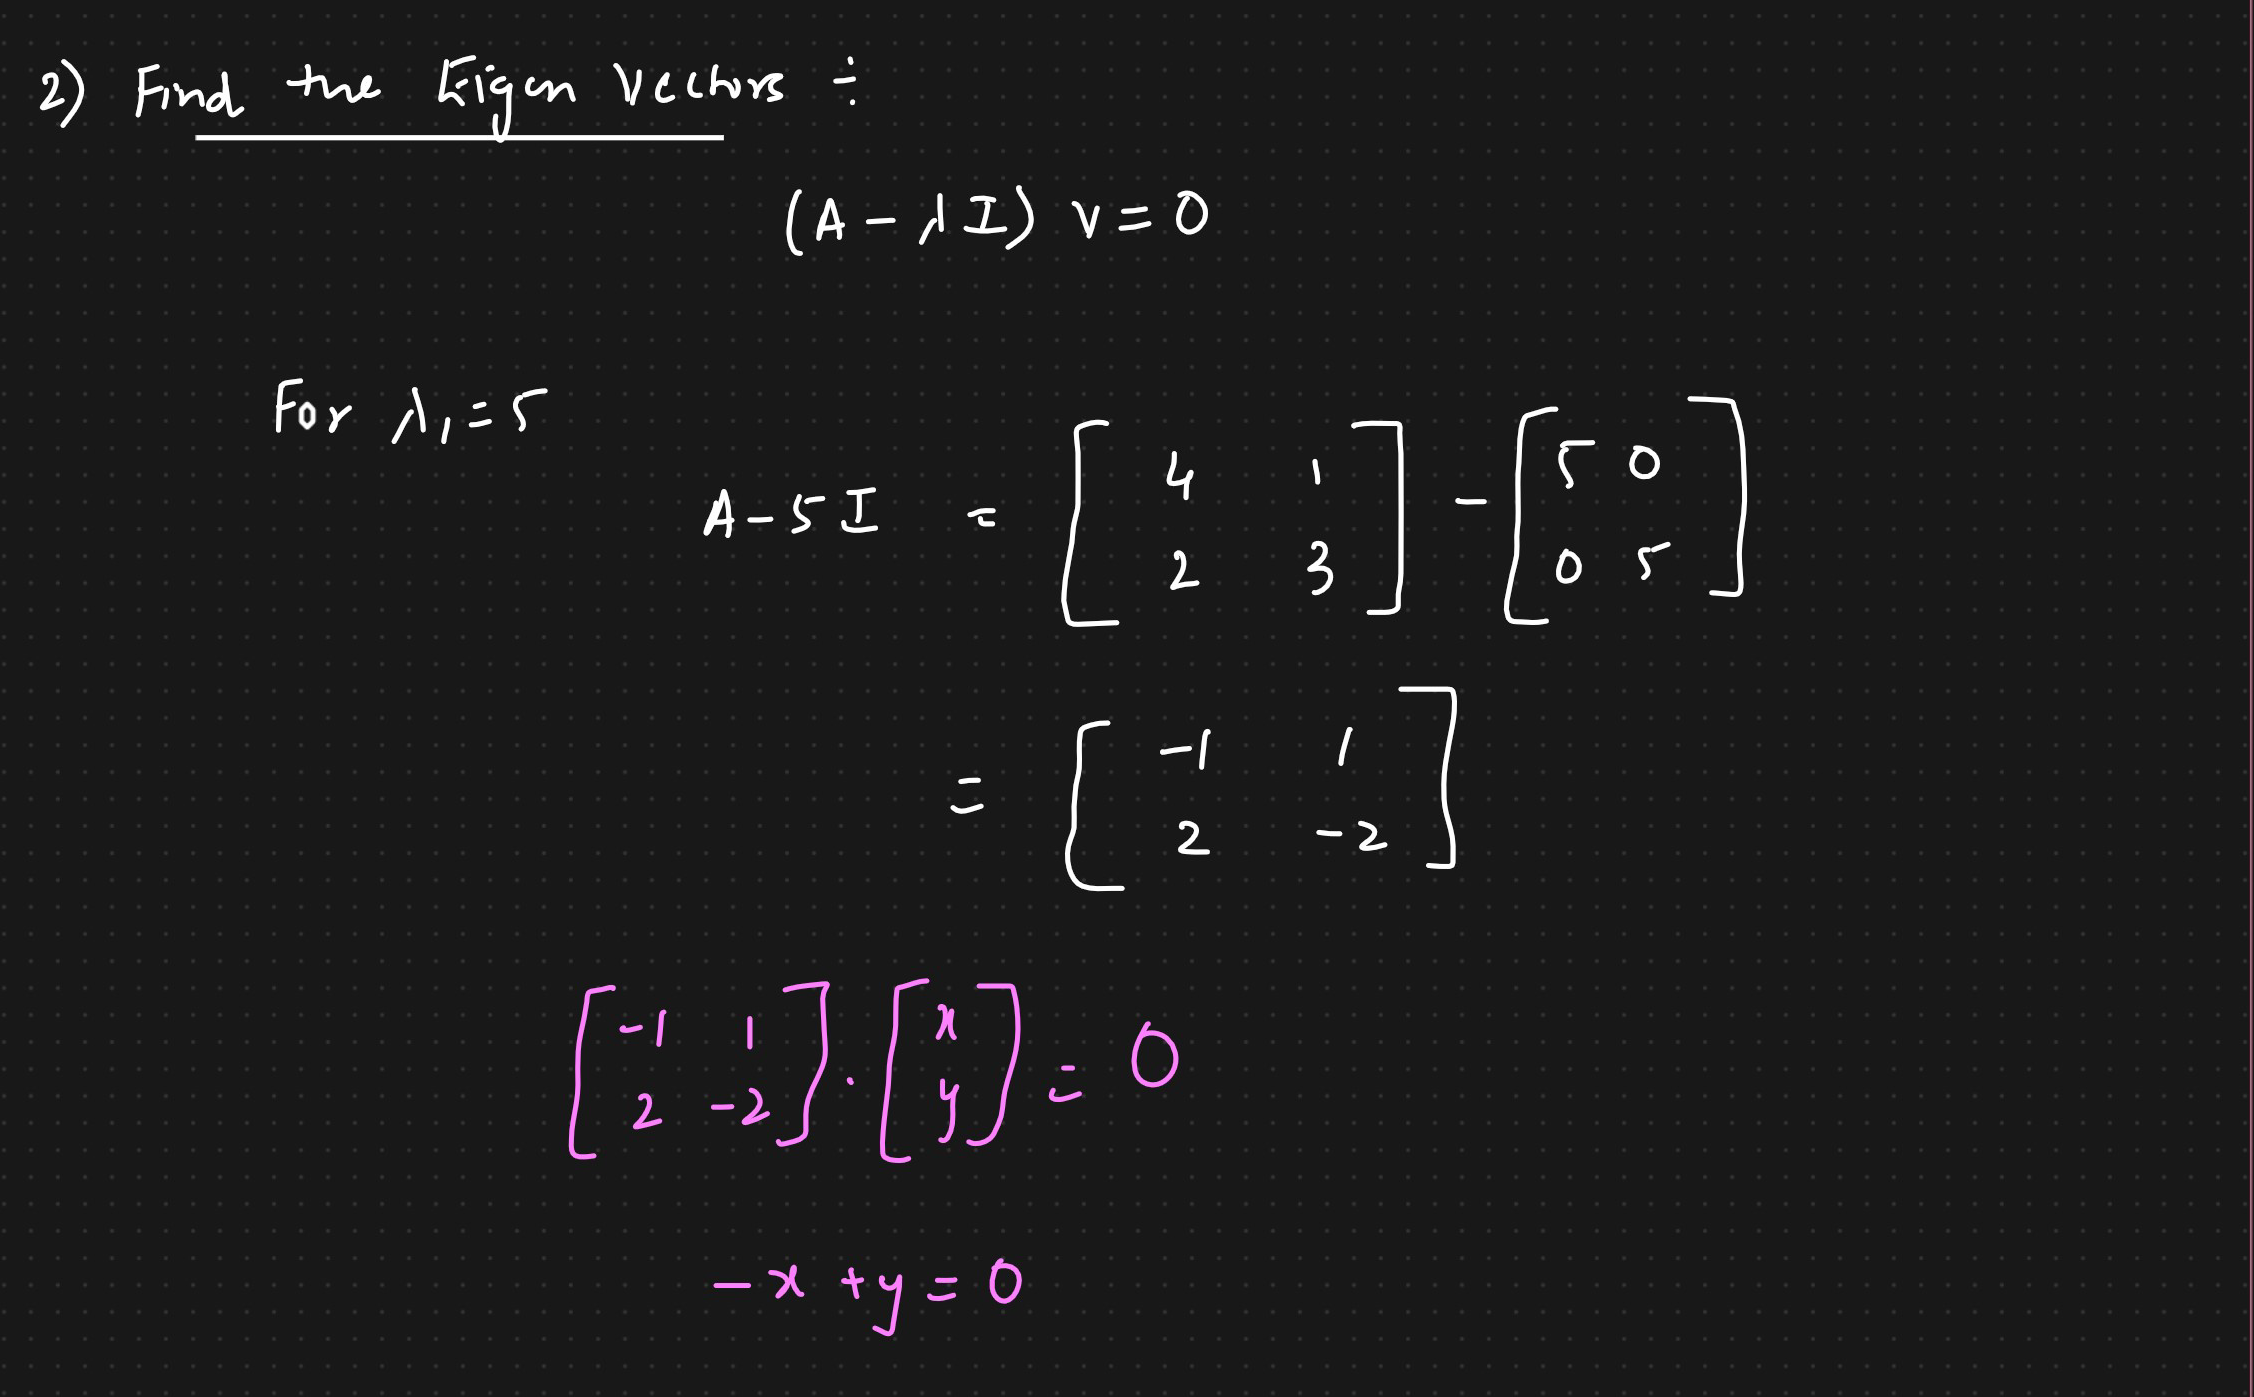 2) Find the Eigen Vectors ÷
(A - λI) v = 0
For λ₁ = 5
A - 5I = [ 4 1 ; 2 3 ] - [ 5 0 ; 0 5 ]
= [ -1 1 ; 2 -2 ]
[ -1 1 ; 2 -2 ] · [ x ; y ] = 0
- x + y = 0